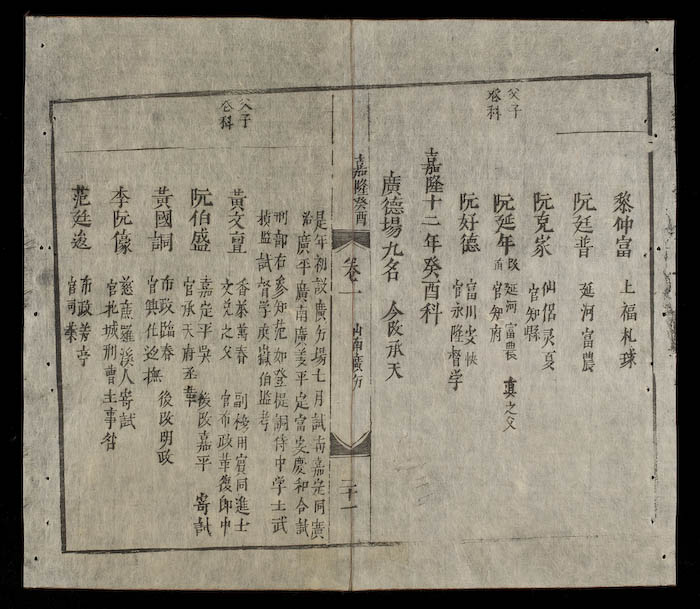 父子
登科
黎仲富 上福札球
阮廷普 延河富農
阮克家 仙侶灵夏
官知縣
阮延年 改 延河富農 真之父
官知府
阮好德 富川安快
官永隆督学
嘉隆十二年癸酉科
廣德場九名 今改承天
嘉隆癸酉 卷一 山南廣 二十一
是年初設廣場七月試南嘉定同廣
治廣平廣南廣義平定富安慶和合試
刑部右參知范如登提調侍中学士武
楨監試督学承嶽伯監考
父子
登科
黃文亶 香茶萬春 副榜用賓同進士
文兑之父 官布政革復郎中
阮伯盛 嘉定平吳 後改嘉平 寄試
官承天府丞革
黃國調 布政臨春 後改明政
官興化巡撫
李阮儫 慈廉羅溪人寄試
官北城刑曹主事
范廷 布政芳亭
官司業